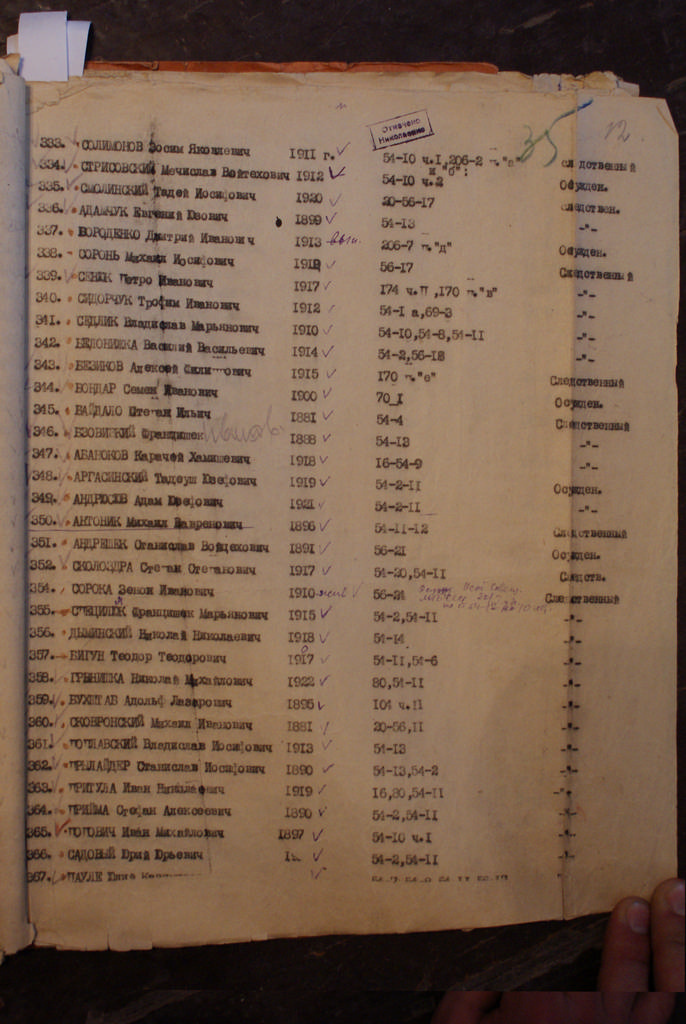 Отмечено
Николаенно
35
12
333. СОЛИМОНОВ Зосим Яковлевич 1911 г. 54-10 ч.I,206-2 п."а" и "б"; следственный
334. СТРИСОВСКИЙ Мечислав Войтехович 1912 54-10 ч.2 Осужден.
335. СМОЛИНСКИЙ Тадей Иосифович 1920 20-56-17 следствен.
336. АДАМЧУК Евгений Юзович 1899 54-13 -"-
337. БОРОДЕНКО Дмитрий Иванович 1913 206-7 п."д" Осужден.
338. СОРОНЬ Михаил Иосифович 1918 56-17 Следственный
339. СЕНЮК Петро Иванович 1917 174 ч.П,170 п."в" -"-
340. СИДОРЧУК Трофим Иванович 1912 54-I а,69-3 -"-
341. СЕДЛИК Владислав Марьянович 1910 54-10,54-8,54-II -"-
342. БЕДОНИЖКА Василий Васильевич 1914 54-2,56-18 -"-
343. БЕЗИКОВ Алексей 1915 170 п."е" Следственный
344. БОНДАР Семен Иванович 1900 70 I Осужден.
345. ВАЙДАЛО Штефан Ильич 1881 54-4 Следственный
346. БЗОВИЦКИЙ Францишек 1888 54-13 -"-
347. АБАНОКОВ Карачей Хамишевич 1918 16-54-9 -"-
348. АРГАСИНСКИЙ Тадеуш Юзефович 1919 54-2-II Осужден.
349. Адам Юзефович 1921 54-2-II -"-
350. АНТОНИК Михаил Лавренович 1896 54-II-12 Следственный
351. АНДРЕШЕК Станислав Войцехович 1891 56-21 Осужден.
352. СКОЛОЗДРА Степан Степанович 1917 54-20,54-II Следств.
354. СОРОКА Зенон Иванович 1910 56-24 Следственный
355. СТЕЦИЛЮК Францишек Марьянович 1915 54-2,54-II -"-
356. ДЫМИНСКИЙ Николай Николаевич 1918 54-14 -"-
357. БИГУН Теодор Теодорович 1907 54-II,54-6 -"-
358. ГРЫНИШКА Николай Михайлович 1922 80,54-II -"-
359. БУХШТАВ Адольф Лазарович 1895 104 ч.II -"-
360. СКОВРОНСКИЙ Михаил Иванович 1881 20-56,II -"-
361. ПОПЛАВСКИЙ Владислав Иосифович 1913 54-13 -"-
362. ПРЫЛАЙДЕР Станислав Иосифович 1890 54-13,54-2 -"-
363. ПРИТУЛА Иван Николаевич 1919 16,80,54-II -"-
364. ПРИЙМА Стефан Алексеевич 1890 54-2,54-II -"-
365. ПОПОВИЧ Иван Михайлович 1897 54-10 ч.I -"-
366. САДОВЫЙ Юрий Юрьевич 54-2,54-II -"-
367. ПАУЛЕ